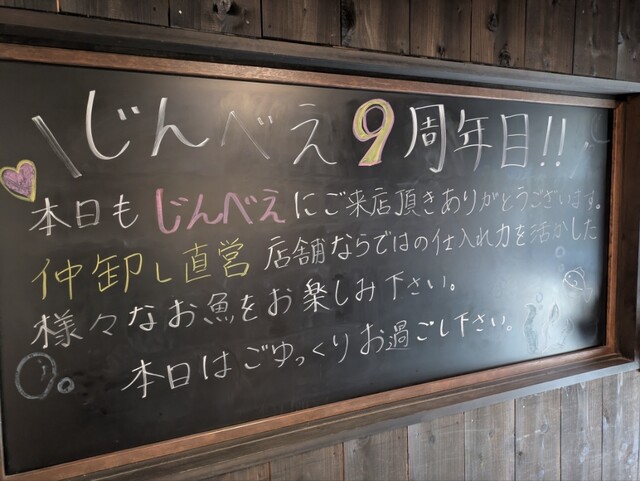 \じんべえ9周年目!!/
本日もじんべえにご来店頂きありがとうございます。
仲卸し直営店舗ならではの仕入れ力を活かした
様々なお魚をお楽しみ下さい。
本日はごゆっくりお過ごし下さい。